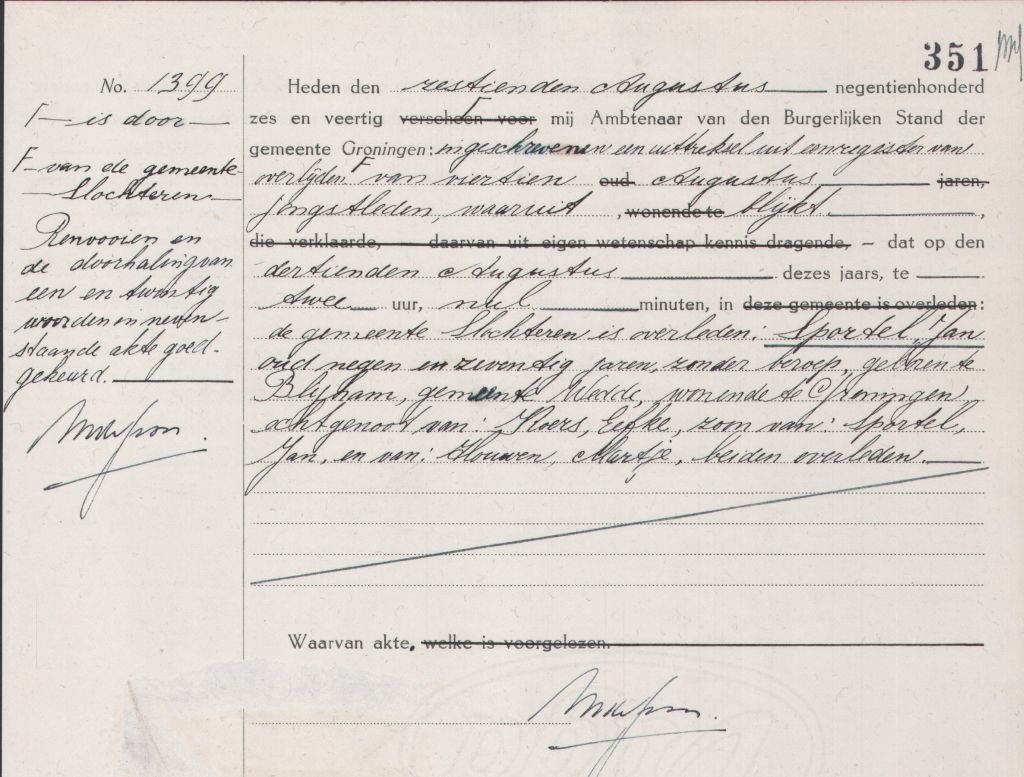 351
No. 1399
F is door
F van de gemeente
Slochteren
Renvooien en
de doorhaling van
een en twintig
woorden in neven-
staande akte goed-
gekeurd.
Heden den zestienden Augustus negentienhonderd
zes en veertig verscheen voor F mij Ambtenaar van den Burgerlijken Stand der
gemeente Groningen: ingeschreven een uittreksel uit een register van
overlijden F van viertien oud Augustus jaren,
jongstleden, waaruit , wonende te blijkt ,
die verklaarde, — daarvan uit eigen wetenschap kennis dragende, – dat op den
dertienden Augustus dezes jaars, te
twee uur, nul minuten, in deze gemeente is overleden:
de gemeente Slochteren is overleden: Sportel, Jan
oud negen en zeventig jaren, zonder beroep, geboren te
Blijham, gemeente Wedde, wonende te Groningen,
echtgenoot van: Koers, Eefke, zoon van: Sportel,
Jan, en van: Houwen, Martje, beiden overleden.
Waarvan akte, welke is voorgelezen.